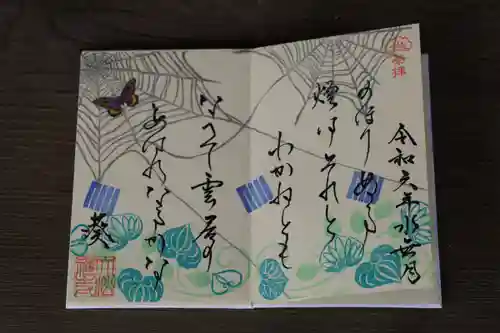 奉拝
令和六年水無月
のほりぬる
煙はそれと
わかねとも
なへて雲居の
あはれなるかな
葵